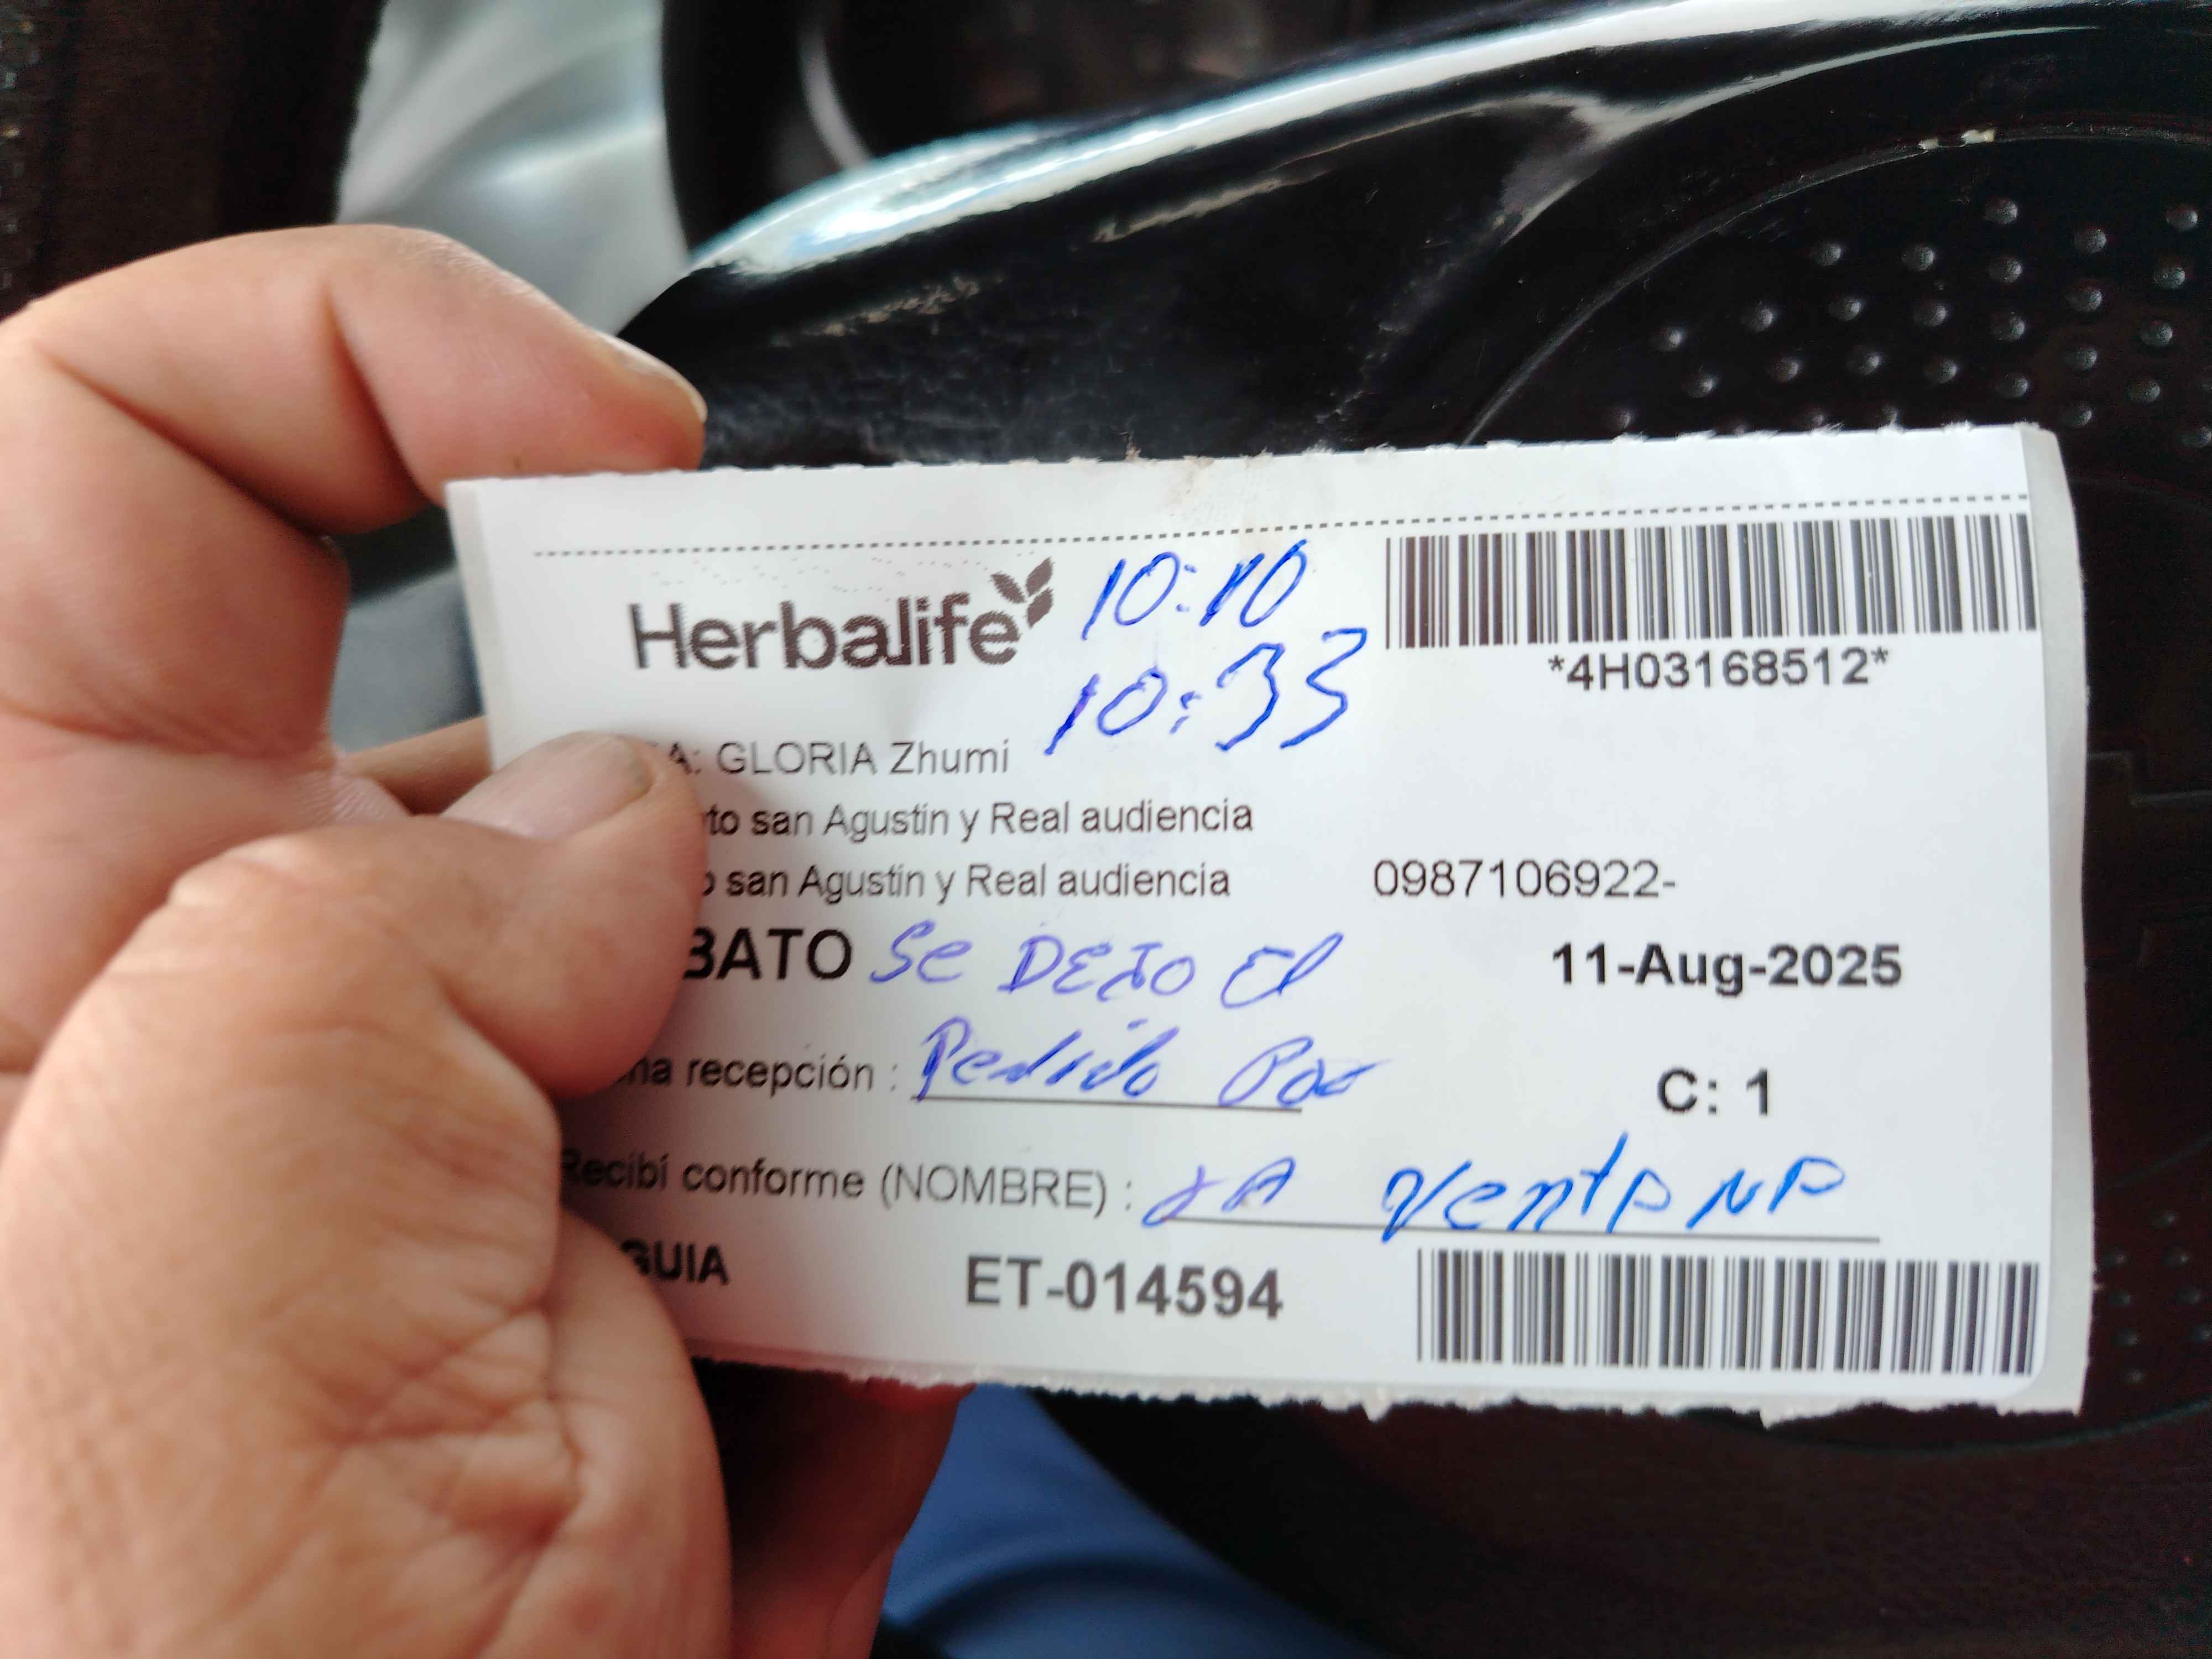 Herbalife 10:10
10:33
*4H03168512*
A: GLORIA Zhumi
to san Agustin y Real audiencia
san Agustin y Real audiencia 0987106922-
BATO Se DEJO El 11-Aug-2025
recepción : Pedido Por C: 1
Recibí conforme (NOMBRE) : LA VentANA
GUIA ET-014594